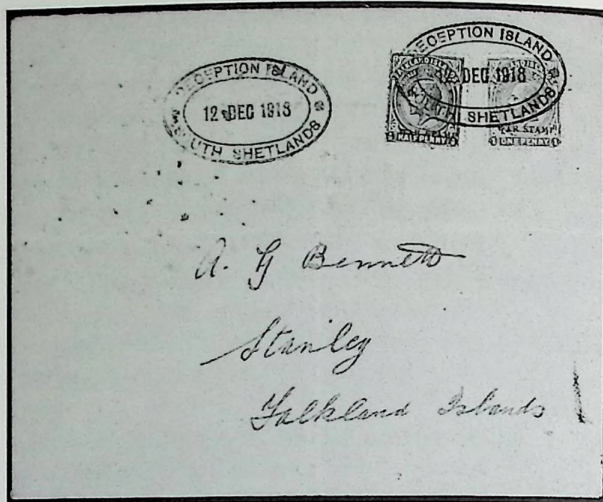 DECEPTION ISLAND
12 DEC 1918
SOUTH SHETLANDS
DECEPTION ISLAND
DEC 1918
SOUTH SHETLANDS
WAR STAMP
HALFPENNY
WAR STAMP
ONE PENNY
A. G Bennett
Stanley
Falkland Islands